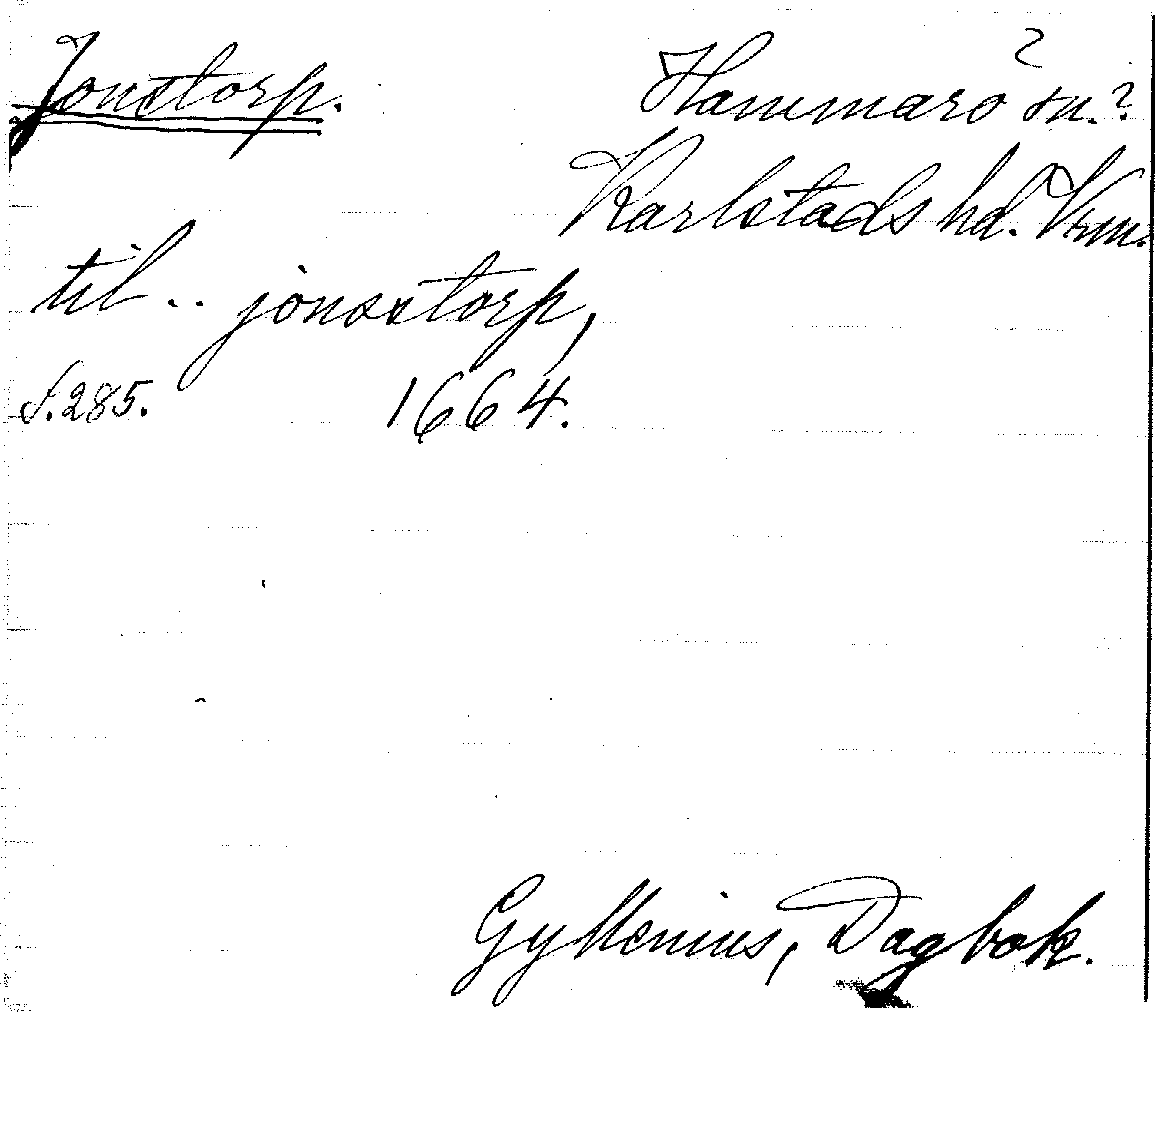 Jonstorp. Hammarö sn.?
Karlstads hd. Vrm.
til .. jonsstorp,
s. 285. 1664.
Gyllenius, Dagbok.